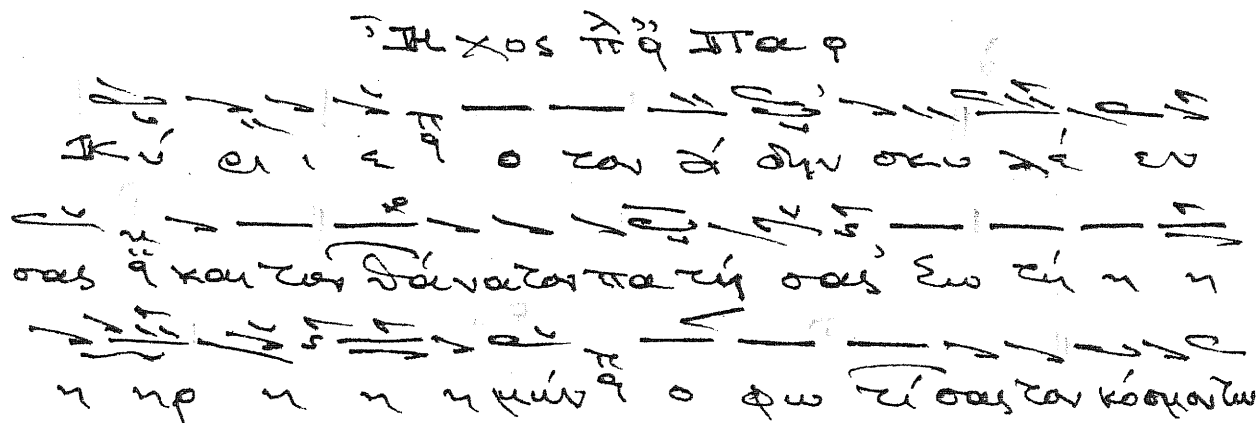 Ἦχος λ π ᾳ Πα
Κύ ρι ι ε ο τον ά δην σκυ λέ ευ
σας και τον θάνατον πα τή σας Σω τή η η
η ηρ η η η μών ο φω τί σας τον κόσμον των